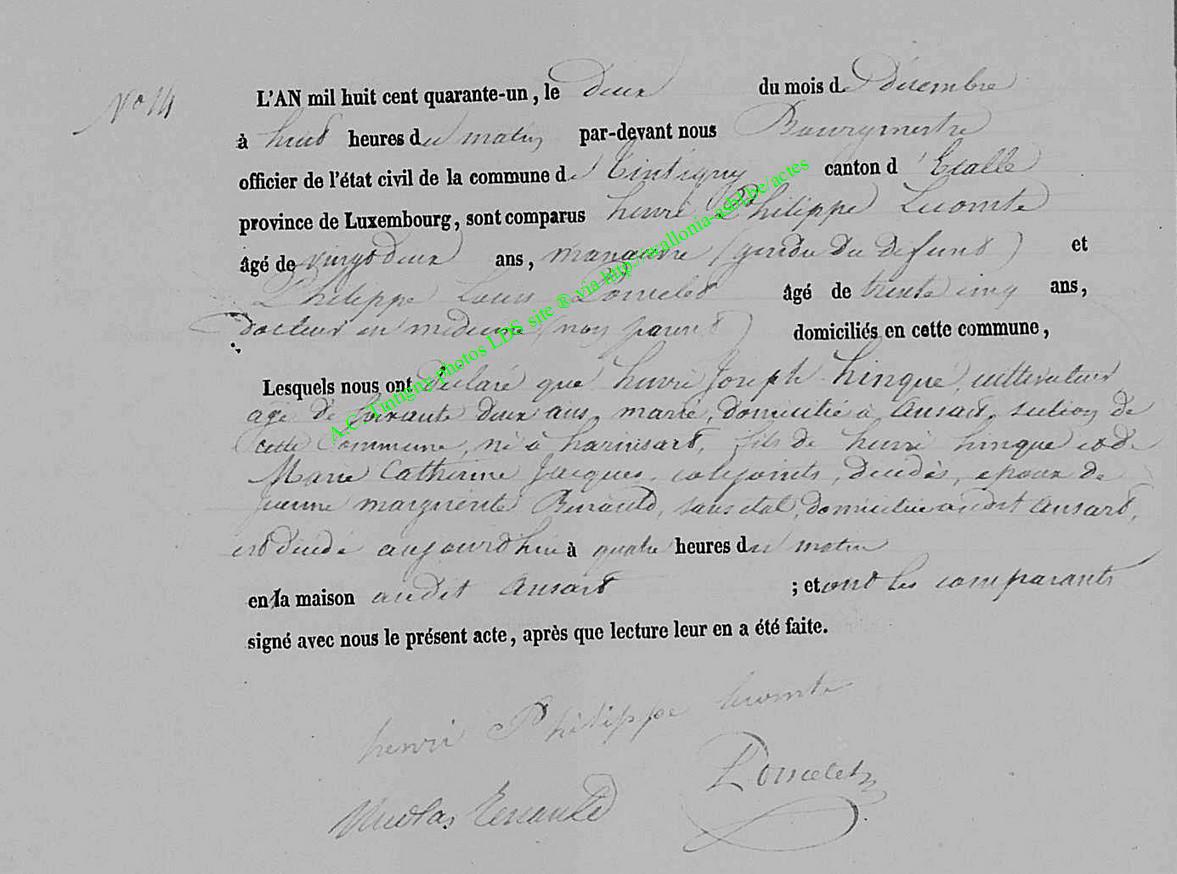 No 14
L'AN mil huit cent quarante-un, le deux du mois de Décembre
à huit heures du matin par-devant nous Bourgmestre
officier de l'état civil de la commune de Tintigny canton d'Etalle
province de Luxembourg, sont comparus henri Philippe Lecomte
âgé de vingt deux ans, manœuvre (gendre du defunt) et
Philippe Louis Poncelet âgé de trente cinq ans,
docteur en médecine, non parent) domiciliés en cette commune,
Lesquels nous ont déclaré que henri Joseph hinque, cultivateur
agé de soixante deux ans, marié, domicilié à Ansart, section de
cette Commune, né à harinsart, fils de henri hinque et de
Marie Catherine Jacques, conjoints, décédés, epoux de
jeanne marguerite, sans etat, domiciliée audit Ansart,
est décédé aujourd'hui à quatre heures du matin
en la maison audit Ansart ; et ont les comparants
signé avec nous le présent acte, après que lecture leur en a été faite.
henri Philippe lecomte
Poncelet
Nicolas Renauld
A.C. Tintigny photos LDS site ® via http://wallonia-asbl.be/actes